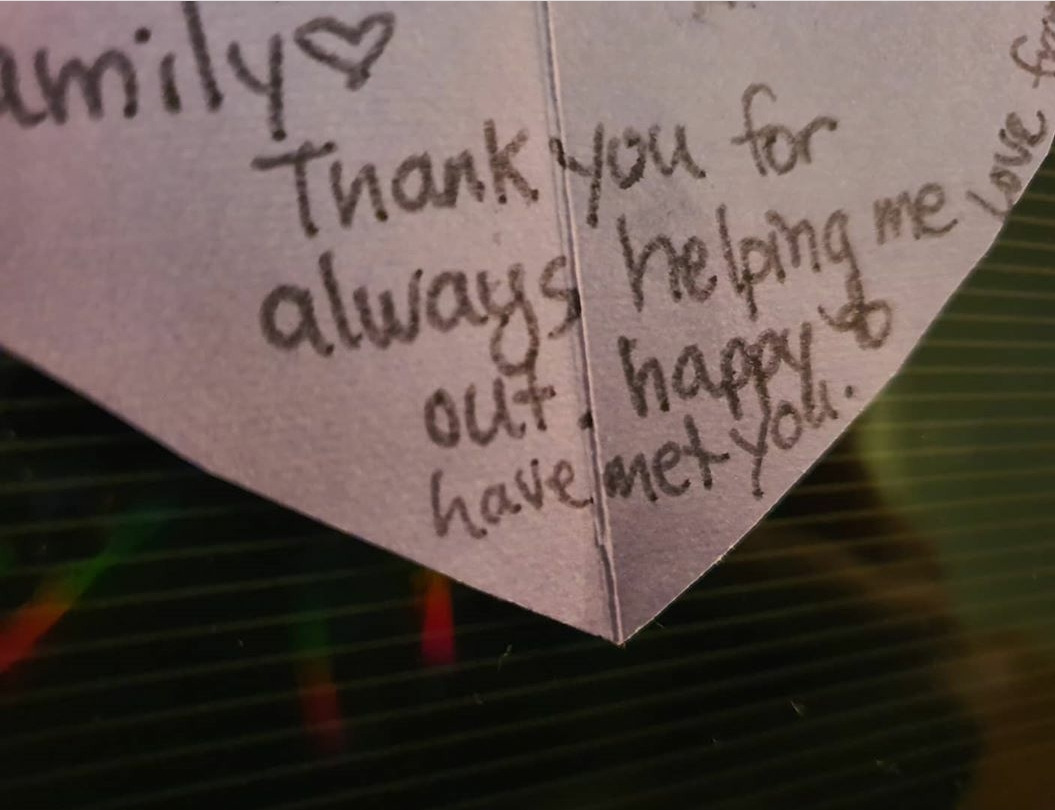 amily♡
Thank you for
always helping me
out. happy to
have met you.
Love